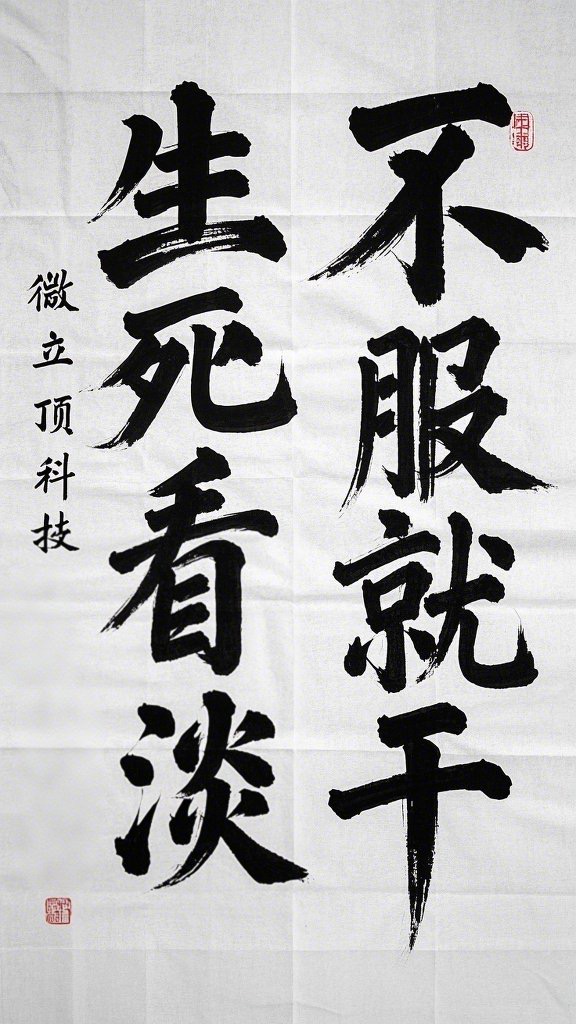 不服就干
生死看淡
微立顶科技